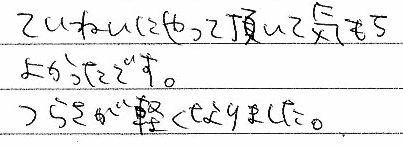 ていねいにやって頂いて気もち
よかったです。
つらさが軽くなりました。